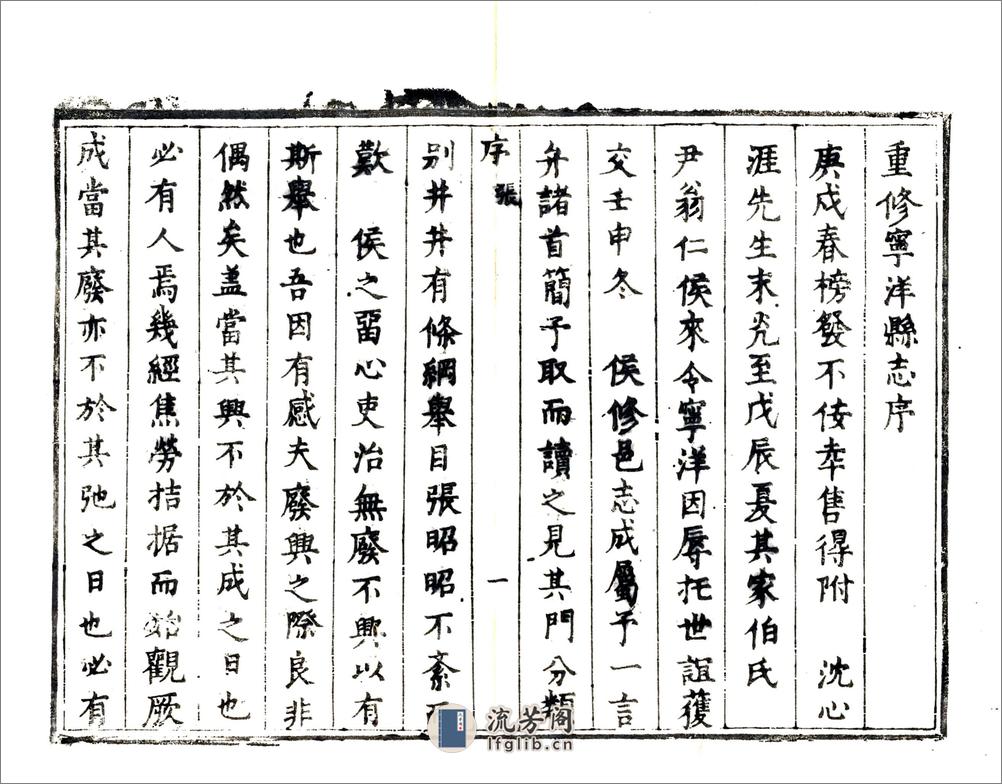 重修寧洋縣志序
庚戍春榜發不佞幸售得附　沈心
涯先生末光至戊辰夏其家伯氏
尹翁仁侯來令寧洋因辱托世誼獲
交壬申冬　侯修邑志成屬予一言
弁諸首簡予取而讀之見其門分類
序　張　一
別井井有條綱舉目張昭昭不紊
歎　侯之畱心吏治無廢不興以有
斯舉也吾因有感夫廢興之際良非
偶然矣盖當其興不於其成之日也
必有人焉幾經焦勞拮据而始觀厥
成當其廢亦不於其弛之日也必有
流芳阁
lfglib.cn